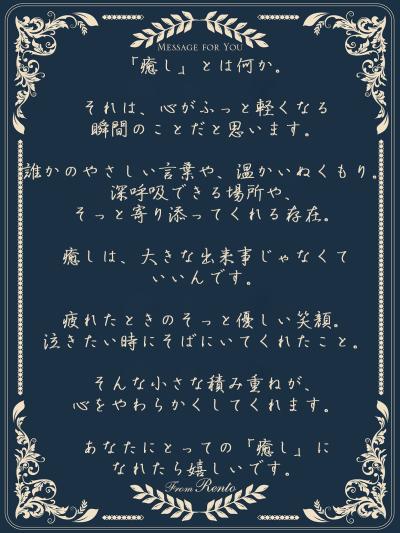 MESSAGE FOR YOU
「癒し」とは何か。
それは、心がふっと軽くなる
瞬間のことだと思います。
誰かのやさしい言葉や、温かいぬくもり。
深呼吸できる場所や、
そっと寄り添ってくれる存在。
癒しは、大きな出来事じゃなくて
いいんです。
疲れたときのそっと優しい笑顔。
泣きたい時にそばにいてくれたこと。
そんな小さな積み重ねが、
心をやわらかくしてくれます。
あなたにとっての「癒し」に
なれたら嬉しいです。
From Rento